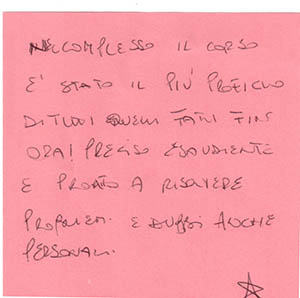 NEL COMPLESSO IL CORSO
E' STATO IL PIU' PROFICUO
DI TUTTI QUELLI FATTI FIN
ORA! PRECISO ESAUDIENTE
E PRONTO A RISOLVERE
PROBLEMI E DUBBI ANCHE
PERSONALI.